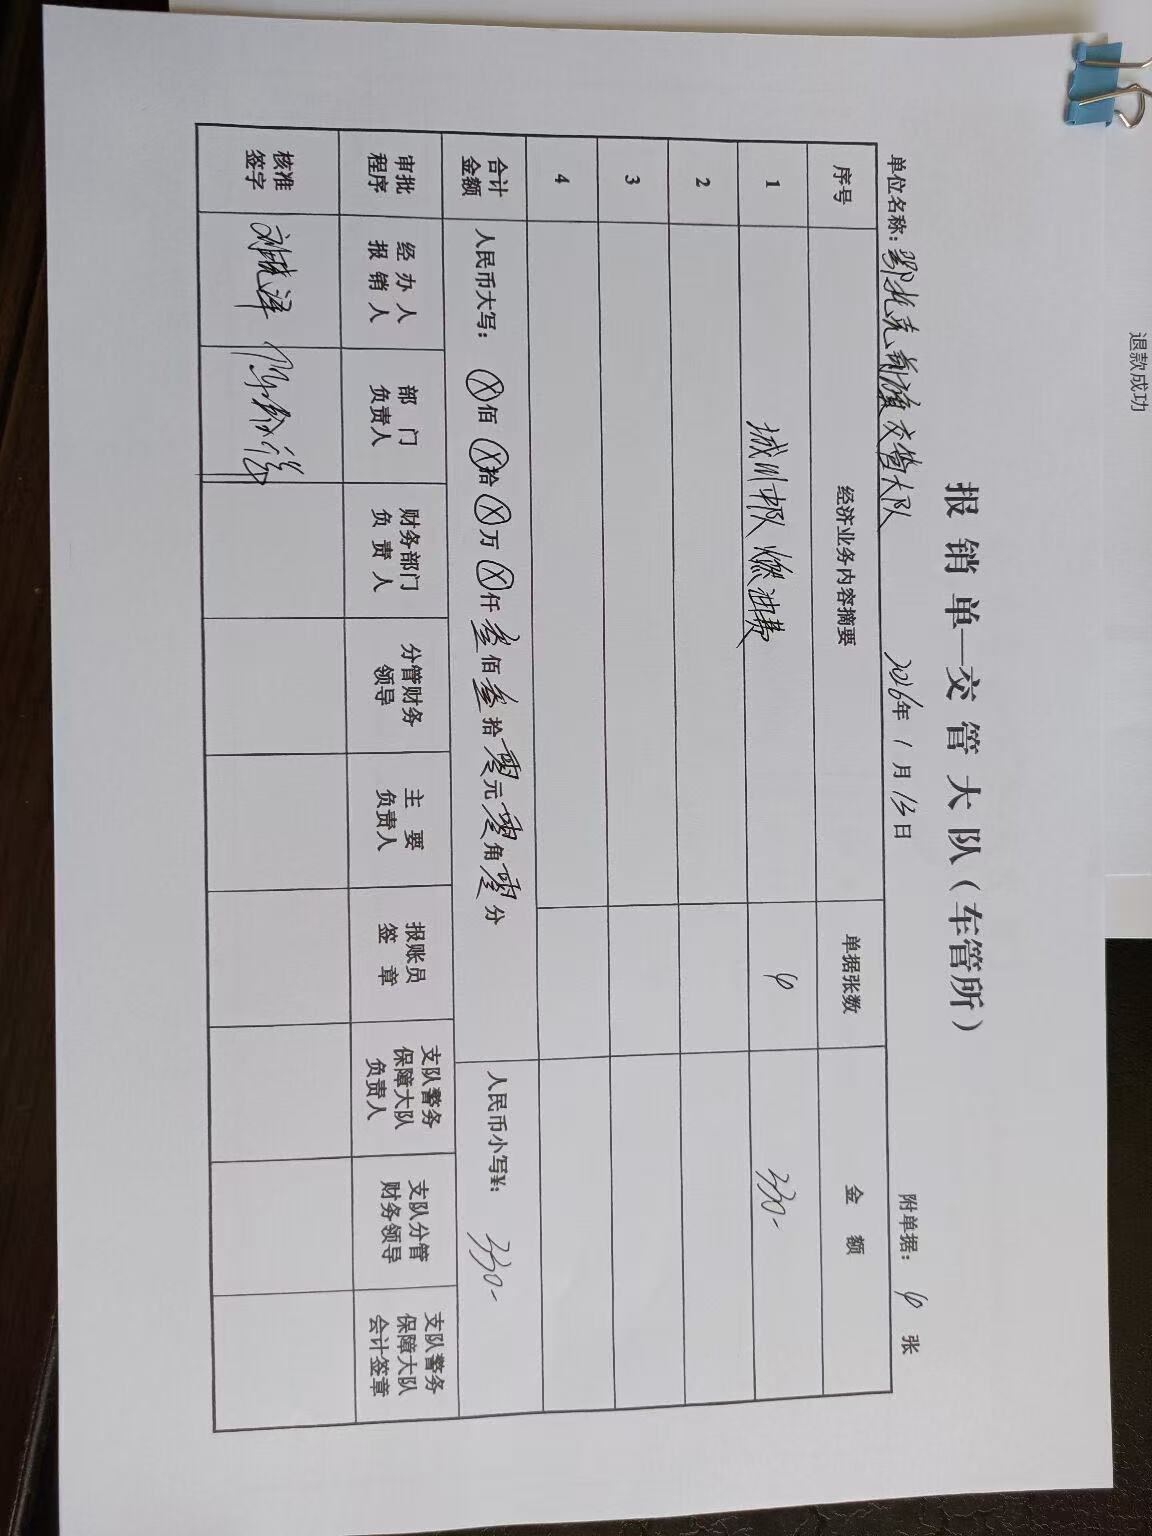 报销单—交管大队（车管所）
单位名称：鄂托克前旗交管大队 2026年1月13日 附单据：4张
序号 经济业务内容摘要 单据张数 金额
1 城川中队燃油费 4 330-
2
3
4
合计金额 人民币大写：ⓧ佰ⓧ拾ⓧ万ⓧ仟叁佰叁拾零元零角零分 人民币小写¥：330-
审批程序 经办人报销人 部门负责人 财务部门负责人 分管财务领导 主要负责人 报账员签章 支队警务保障大队负责人 支队分管财务领导 支队警务保障大队会计签章
核准签字
退款成功